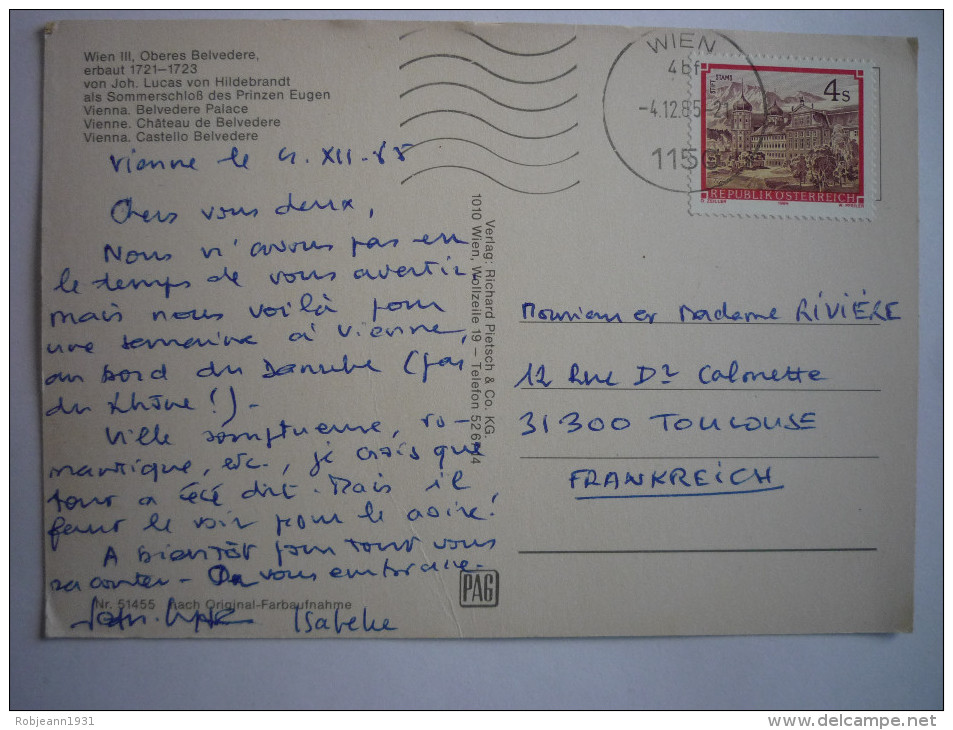 Wien III, Oberes Belvedere,
erbaut 1721–1723
von Joh. Lucas von Hildebrandt
als Sommerschloß des Prinzen Eugen
Vienna. Belvedere Palace
Vienne. Château de Belvedere
Vienna. Castello Belvedere
Vienne le 4.XII.85
Chers vous deux,
Nous n'avons pas eu
le temps de vous avertir,
mais nous voilà pour
une semaine à Vienne,
au bord du Danube (pas
du Rhône!) -
Ville somptueuse, ro-
mantique, etc., je crois que
tout a été dit. Mais il
faut le voir pour le croire!
A bientôt pour tout vous
raconter - On vous embrasse.
Isabelle
Nr. 51455 nach Original-Farbaufnahme
Verlag: Richard Pietsch & Co. KG.
1010 Wien, Wollzeile 19 – Telefon 52 6
PAG
WIEN
-4.12.85-21
1150
STIFT STAMS
4 S
REPUBLIK ÖSTERREICH
Monsieur et Madame RIVIÈRE
12 Rue Dr Calmette
31.300 TOULOUSE
FRANKREICH
Robjeann1931
delcampe.net